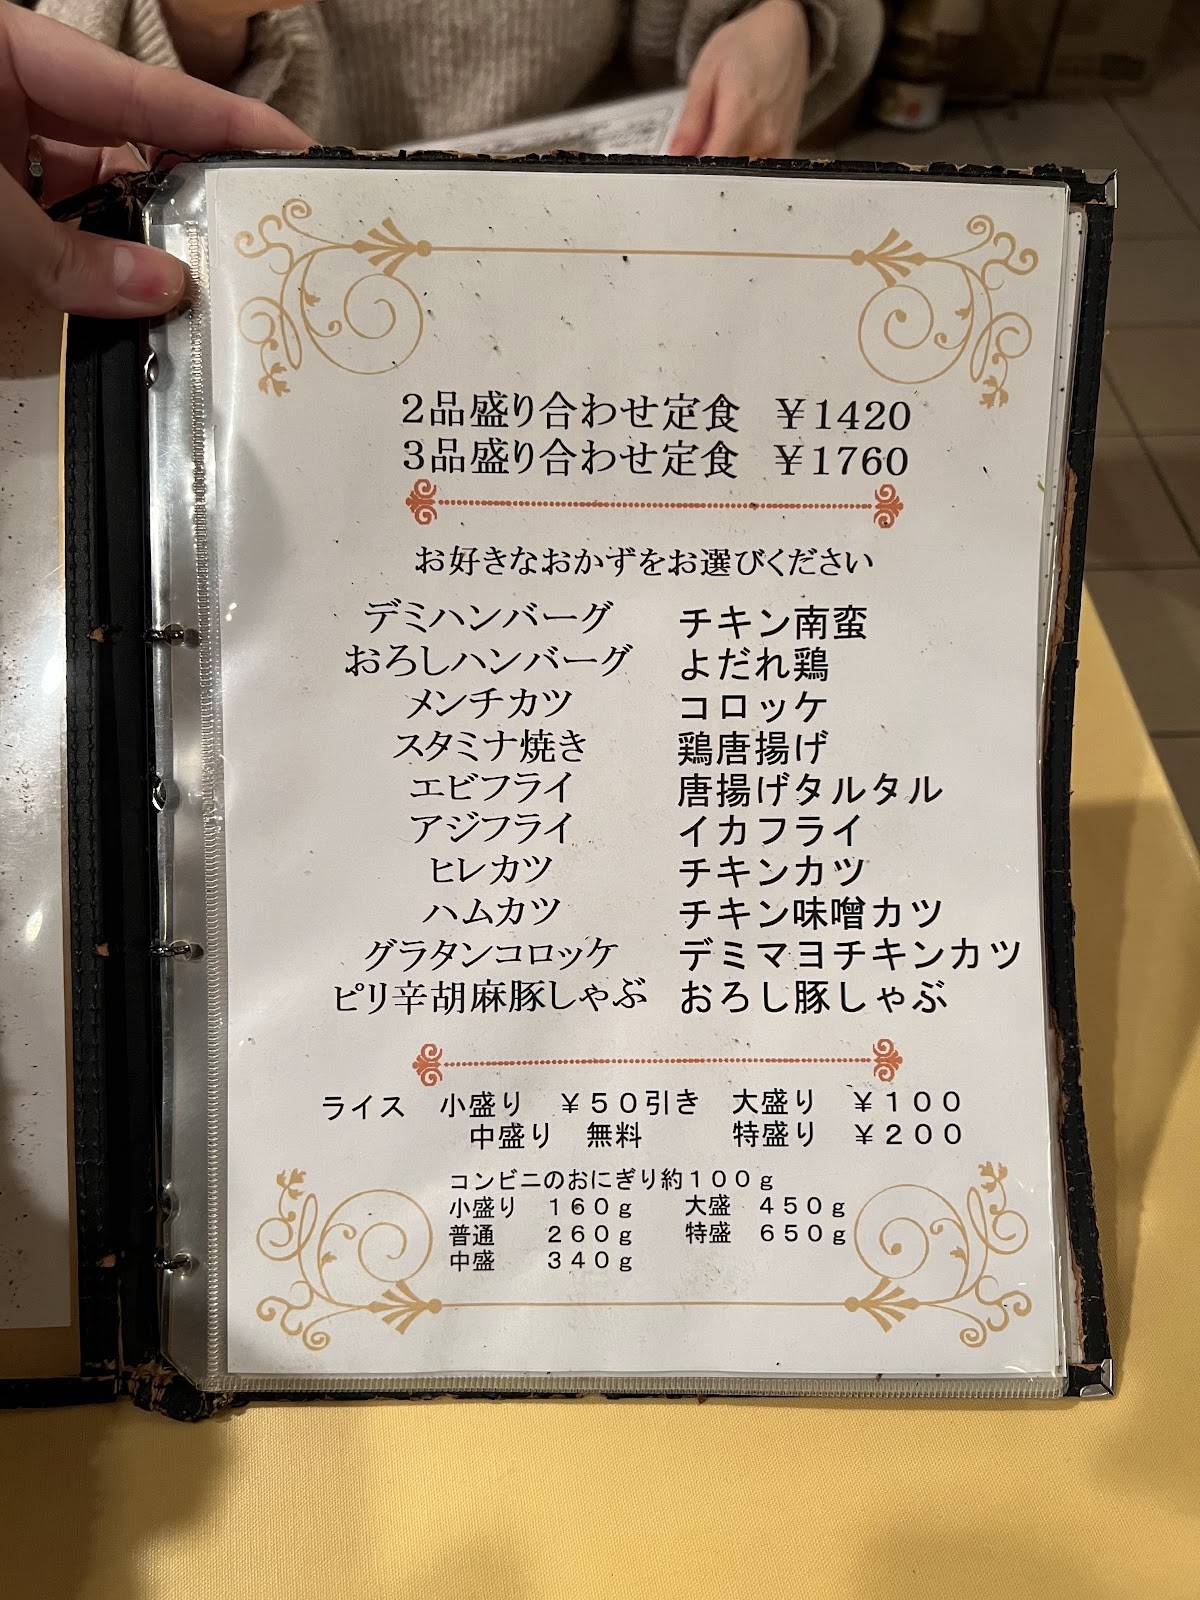 ２品盛り合わせ定食　￥1420
３品盛り合わせ定食　￥1760
お好きなおかずをお選びください
デミハンバーグ　チキン南蛮
おろしハンバーグ　よだれ鶏
メンチカツ　コロッケ
スタミナ焼き　鶏唐揚げ
エビフライ　唐揚げタルタル
アジフライ　イカフライ
ヒレカツ　チキンカツ
ハムカツ　チキン味噌カツ
グラタンコロッケ　デミマヨチキンカツ
ピリ辛胡麻豚しゃぶ　おろし豚しゃぶ
ライス　小盛り　￥５０引き　大盛り　￥１００
中盛り　無料　特盛り　￥２００
コンビニのおにぎり約１００ｇ
小盛り　１６０ｇ　大盛　４５０ｇ
普通　２６０ｇ　特盛　６５０ｇ
中盛　３４０ｇ